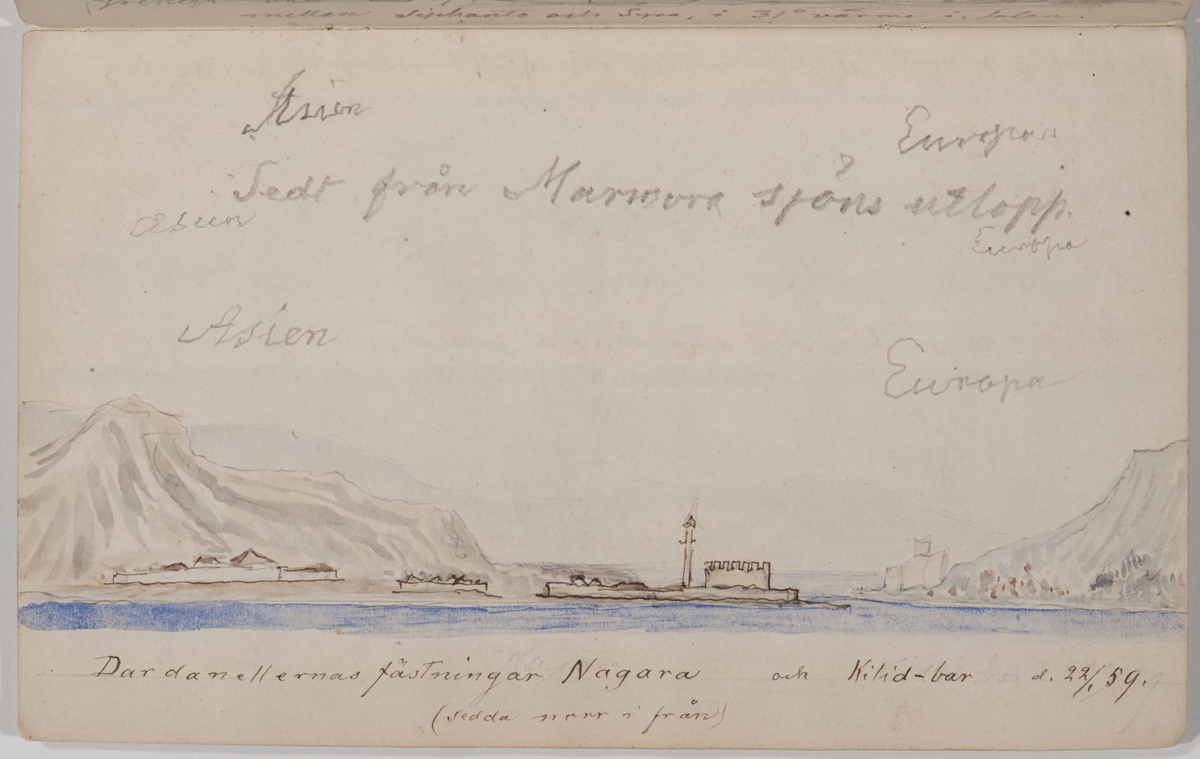 mellan och Syra, i 31° värme i
Asien
Europa
Sedt från Marmora sjöns utlopp.
Asien
Europa
Asien
Europa
Dardanellernas fästningar Nagara och Kilid-bar d. 22/1 59.
(sedda norr i från)